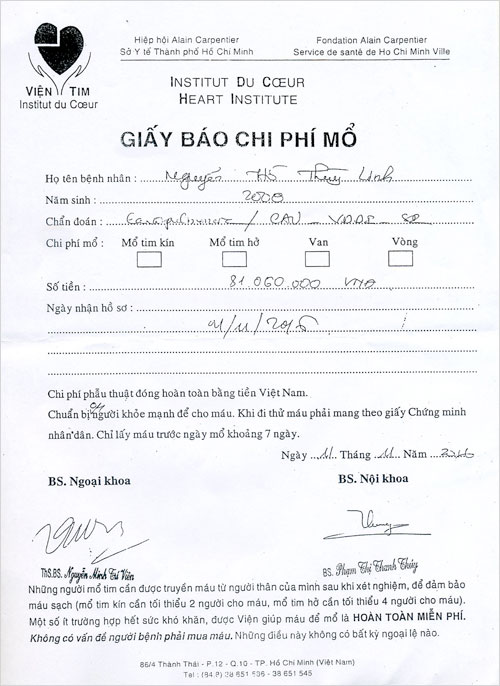 Hiệp hội Alain Carpentier
Sở Y tế Thành phố Hồ Chí Minh
Fondation Alain Carpentier
Service de santé de Ho Chi Minh Ville
VIỆN TIM
Institut du Cœur
INSTITUT DU CŒUR
HEART INSTITUTE
GIẤY BÁO CHI PHÍ MỔ
Họ tên bệnh nhân : Nguyễn Hồ Thùy Linh
Năm sinh : 2000
Chẩn đoán : / CAV
Chi phí mổ : Mổ tim kín Mổ tim hở Van Vòng
Số tiền : 81.060.000 VNĐ
Ngày nhận hồ sơ :
Chi phí phẫu thuật đóng hoàn toàn bằng tiền Việt Nam.
Chuẩn bị 04 người khỏe mạnh để cho máu. Khi đi thử máu phải mang theo giấy Chứng minh
nhân dân. Chỉ lấy máu trước ngày mổ khoảng 7 ngày.
Ngày 11 Tháng 11 Năm
BS. Ngoại khoa
BS. Nội khoa
ThS.BS. Nguyễn Minh Trí Viên
BS. Phạm Thị Thanh Thúy
Những người mổ tim cần được truyền máu từ người thân của mình sau khi xét nghiệm, để đảm bảo
máu sạch (mổ tim kín cần tối thiểu 2 người cho máu, mổ tim hở cần tối thiểu 4 người cho máu).
Một số ít trường hợp hết sức khó khăn, được Viện giúp máu để mổ là HOÀN TOÀN MIỄN PHÍ.
Không có vấn đề người bệnh phải mua máu. Những điều này không có bất kỳ ngoại lệ nào.
86/4 Thành Thái - P.12 - Q.10 - TP. Hồ Chí Minh (Việt Nam)
Tel : (84.8) 38 651 586 - 38 651 545